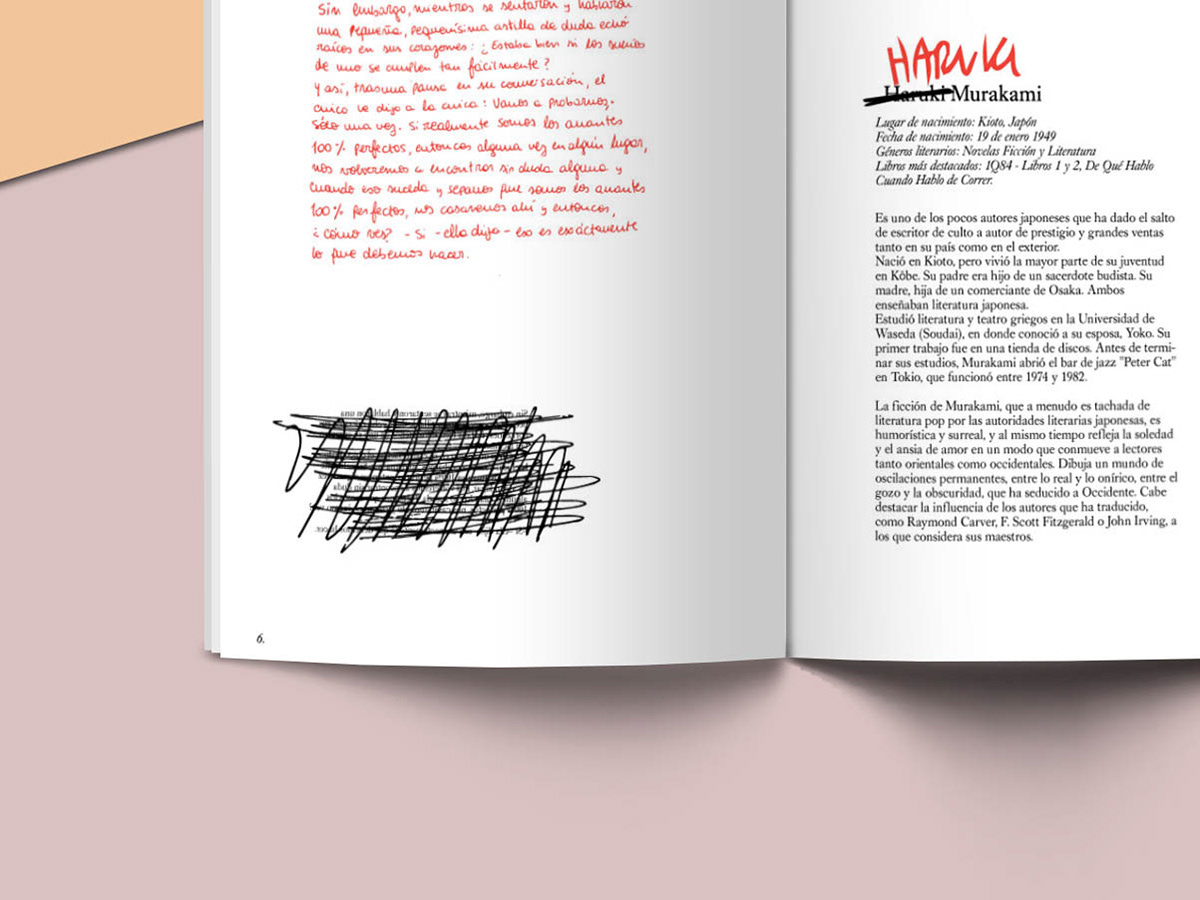 Sin embargo, mientras se sentaron y hablaron
una pequeña, pequeñísima astilla de duda echó
raíces en sus corazones: ¿Estaba bien si los sueños
de uno se cumplen tan fácilmente?
Y así, tras una pausa en su conversación, el
chico le dijo a la chica: Vamos a probarnos.
Sólo una vez. Si realmente somos los amantes
100% perfectos, entonces alguna vez en algún lugar,
nos volveremos a encontrar sin duda alguna y
cuando eso suceda y sepamos que somos los amantes
100% perfectos, nos casaremos ahí y entonces,
¿cómo ves? - Si - ella dijo - eso es exáctamente
lo que debemos hacer.
6.
HARUKI
Haruki Murakami
Lugar de nacimiento: Kioto, Japón
Fecha de nacimiento: 19 de enero 1949
Géneros literarios: Novelas Ficción y Literatura
Libros más destacados: 1Q84 - Libros 1 y 2, De Qué Hablo
Cuando Hablo de Correr.
Es uno de los pocos autores japoneses que ha dado el salto
de escritor de culto a autor de prestigio y grandes ventas
tanto en su país como en el exterior.
Nació en Kioto, pero vivió la mayor parte de su juventud
en Kōbe. Su padre era hijo de un sacerdote budista. Su
madre, hija de un comerciante de Osaka. Ambos
enseñaban literatura japonesa.
Estudió literatura y teatro griegos en la Universidad de
Waseda (Soudai), en donde conoció a su esposa, Yoko. Su
primer trabajo fue en una tienda de discos. Antes de termi-
nar sus estudios, Murakami abrió el bar de jazz "Peter Cat"
en Tokio, que funcionó entre 1974 y 1982.
La ficción de Murakami, que a menudo es tachada de
literatura pop por las autoridades literarias japonesas, es
humorística y surreal, y al mismo tiempo refleja la soledad
y el ansia de amor en un modo que conmueve a lectores
tanto orientales como occidentales. Dibuja un mundo de
oscilaciones permanentes, entre lo real y lo onírico, entre el
gozo y la obscuridad, que ha seducido a Occidente. Cabe
destacar la influencia de los autores que ha traducido,
como Raymond Carver, F. Scott Fitzgerald o John Irving, a
los que considera sus maestros.